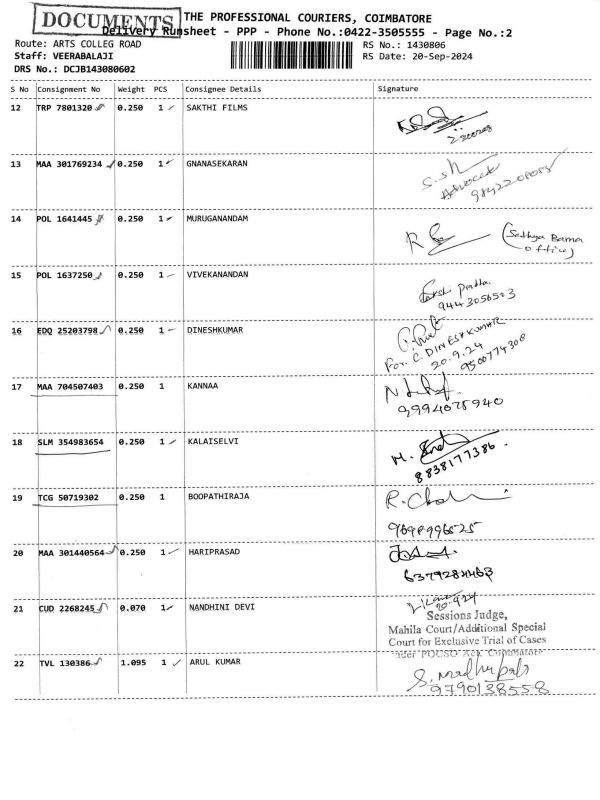 DOCUMENTS THE PROFESSIONAL COURIERS, COIMBATORE
Delivery Runsheet - PPP - Phone No.:0422-3505555 - Page No.:2
Route: ARTS COLLEG ROAD RS No.: 1430806
Staff: VEERABALAJI RS Date: 20-Sep-2024
DRS No.: DCJB143080602
S No Consignment No Weight PCS Consignee Details Signature
12 TRP 7801320 0.250 1 SAKTHI FILMS
13 MAA 301769234 0.250 1 GNANASEKARAN
S.Sh
Advocate
14 POL 1641445 0.250 1 MURUGANANDAM
(Sathya Bama
office)
15 POL 1637250 0.250 1 VIVEKANANDAN
9443056503
16 EDQ 25203798 0.250 1 DINESHKUMAR
For. C. DINESHKUMAR
20.9.24
9500774308
17 MAA 704507403 0.250 1 KANNAA
9994075940
18 SLM 354983654 0.250 1 KALAISELVI
8838177386.
19 TCG 50719302 0.250 1 BOOPATHIRAJA
20 MAA 301440564 0.250 1 HARIPRASAD
21 CUD 2268245 0.070 1 NANDHINI DEVI
20.9.24
Sessions Judge,
Mahila Court/Additional Special
Court for Exclusive Trial of Cases
under POCSO Act, Coimbatore
22 TVL 130386 1.095 1 ARUL KUMAR
9790138558